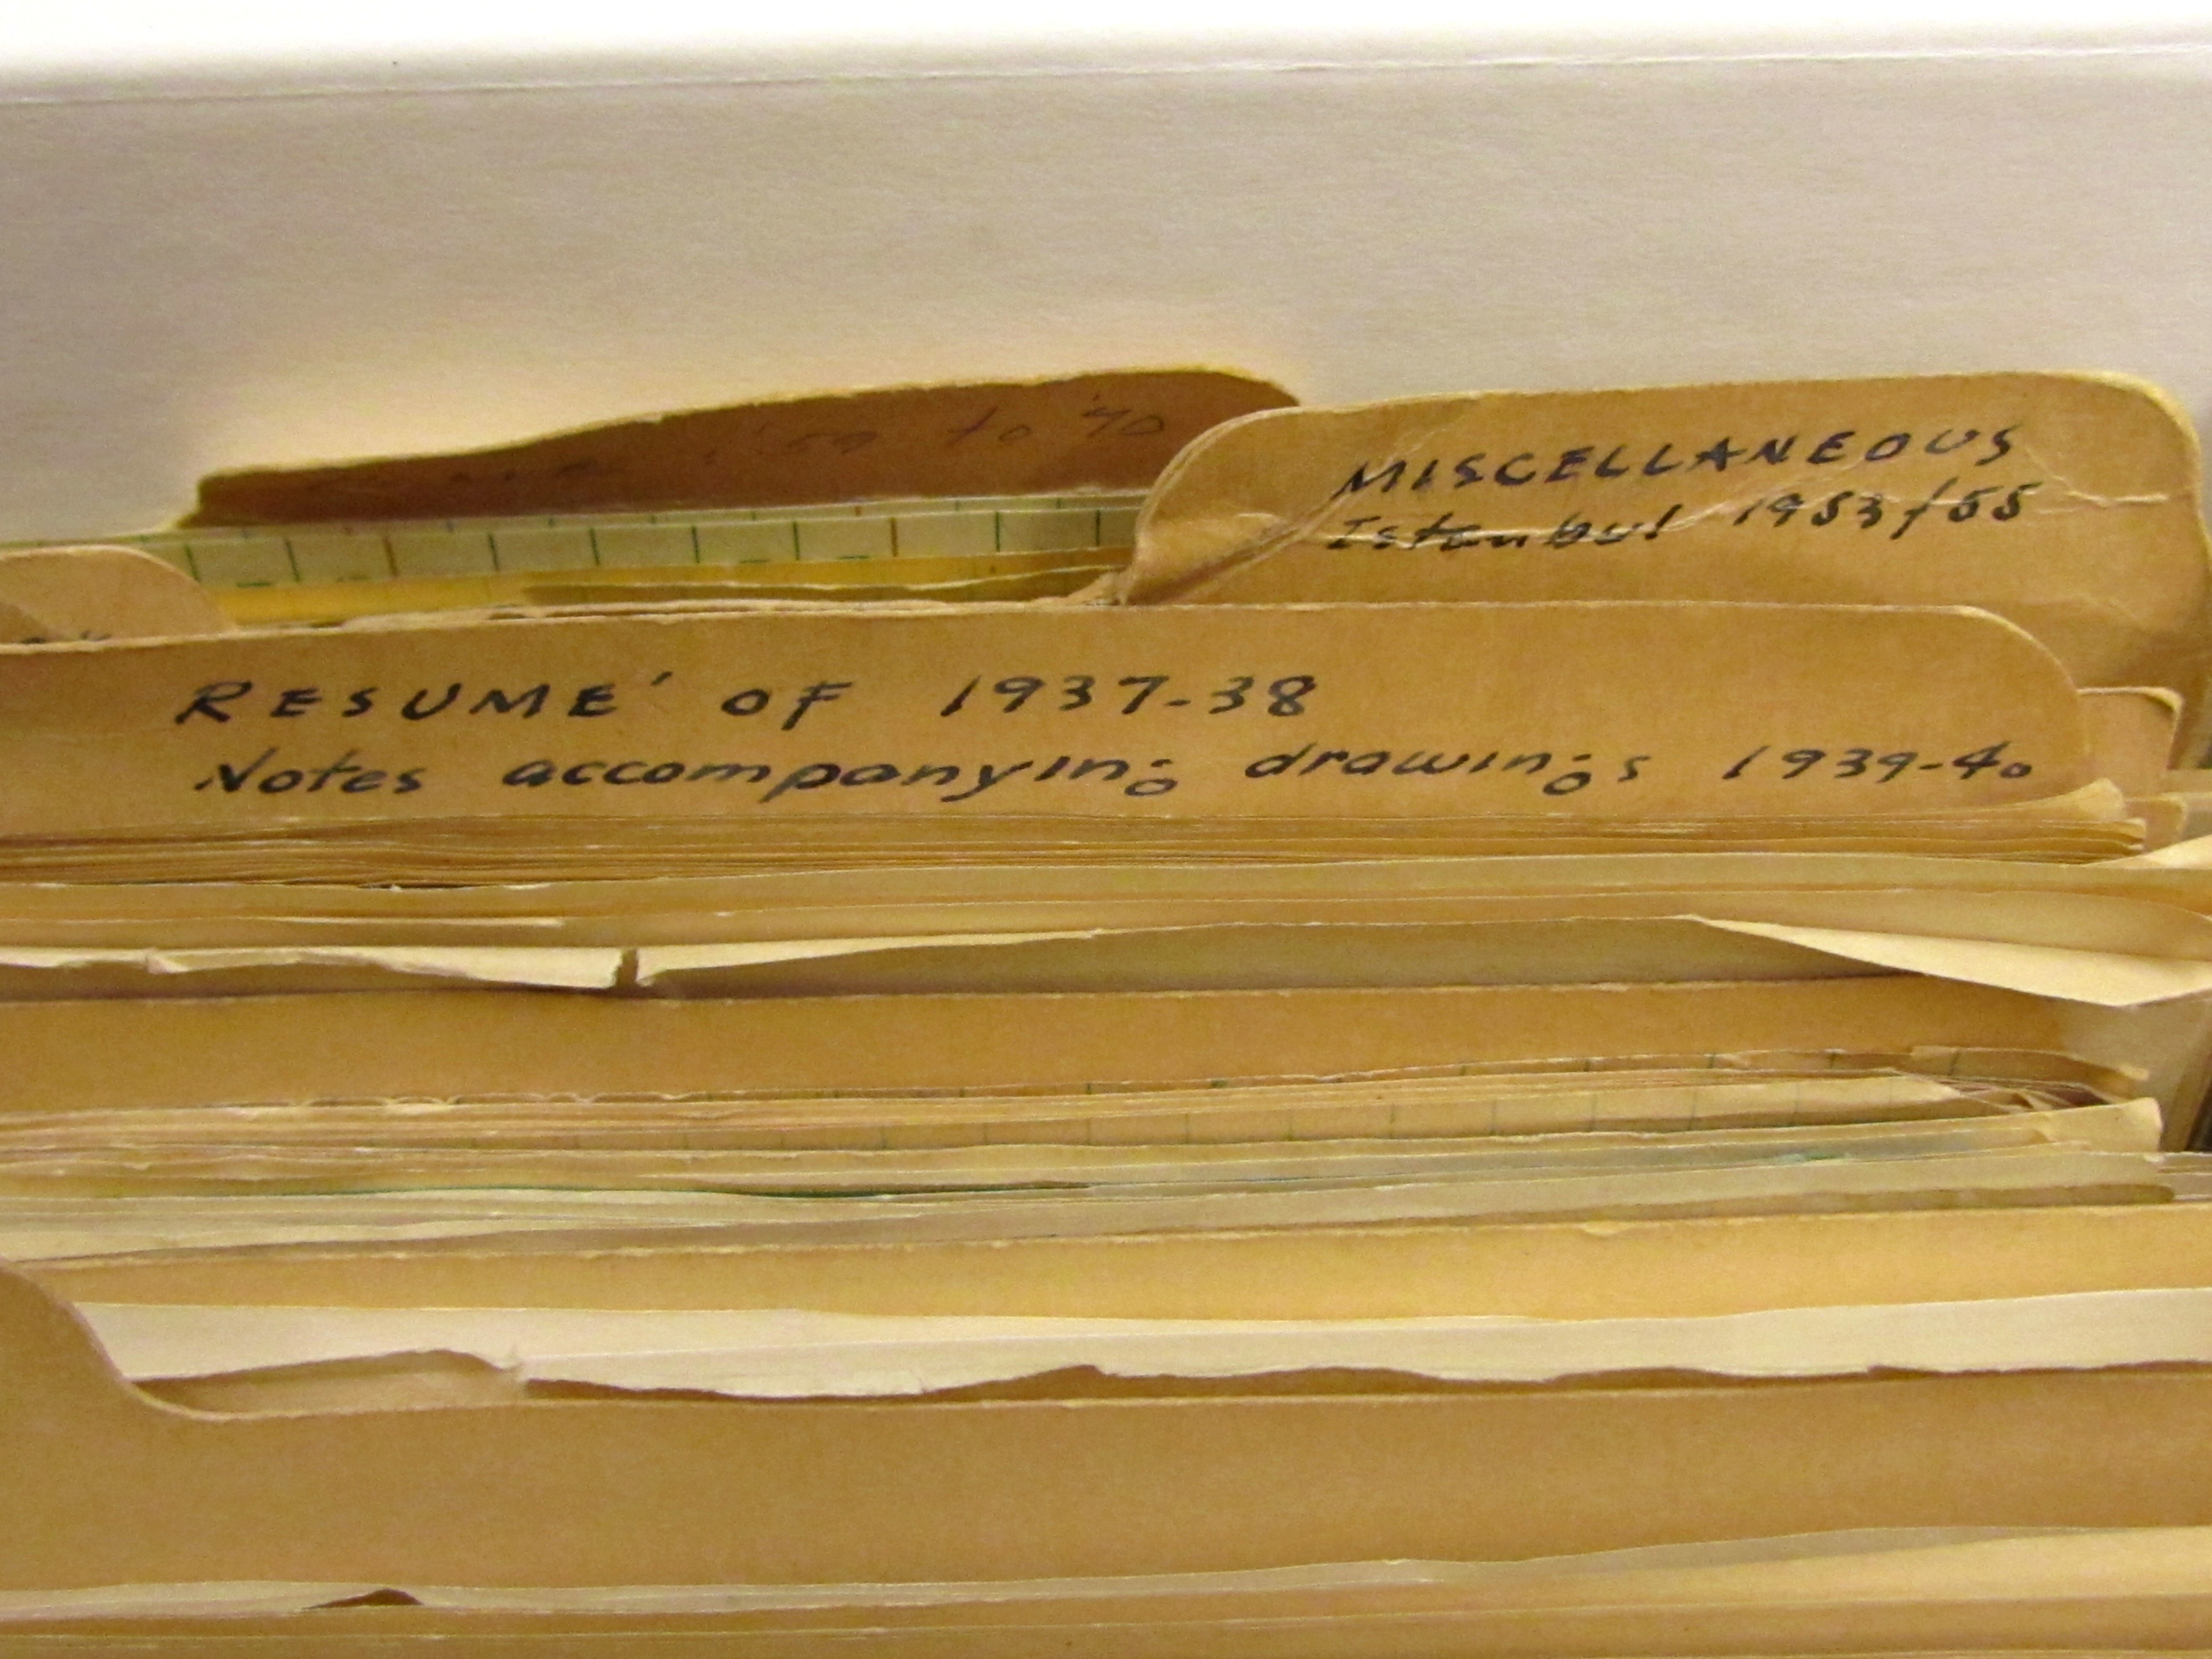 '59 to '70
MISCELLANEOUS
Istanbul 1953/55
RESUME' OF 1937-38
Notes accompanying drawings 1939-40